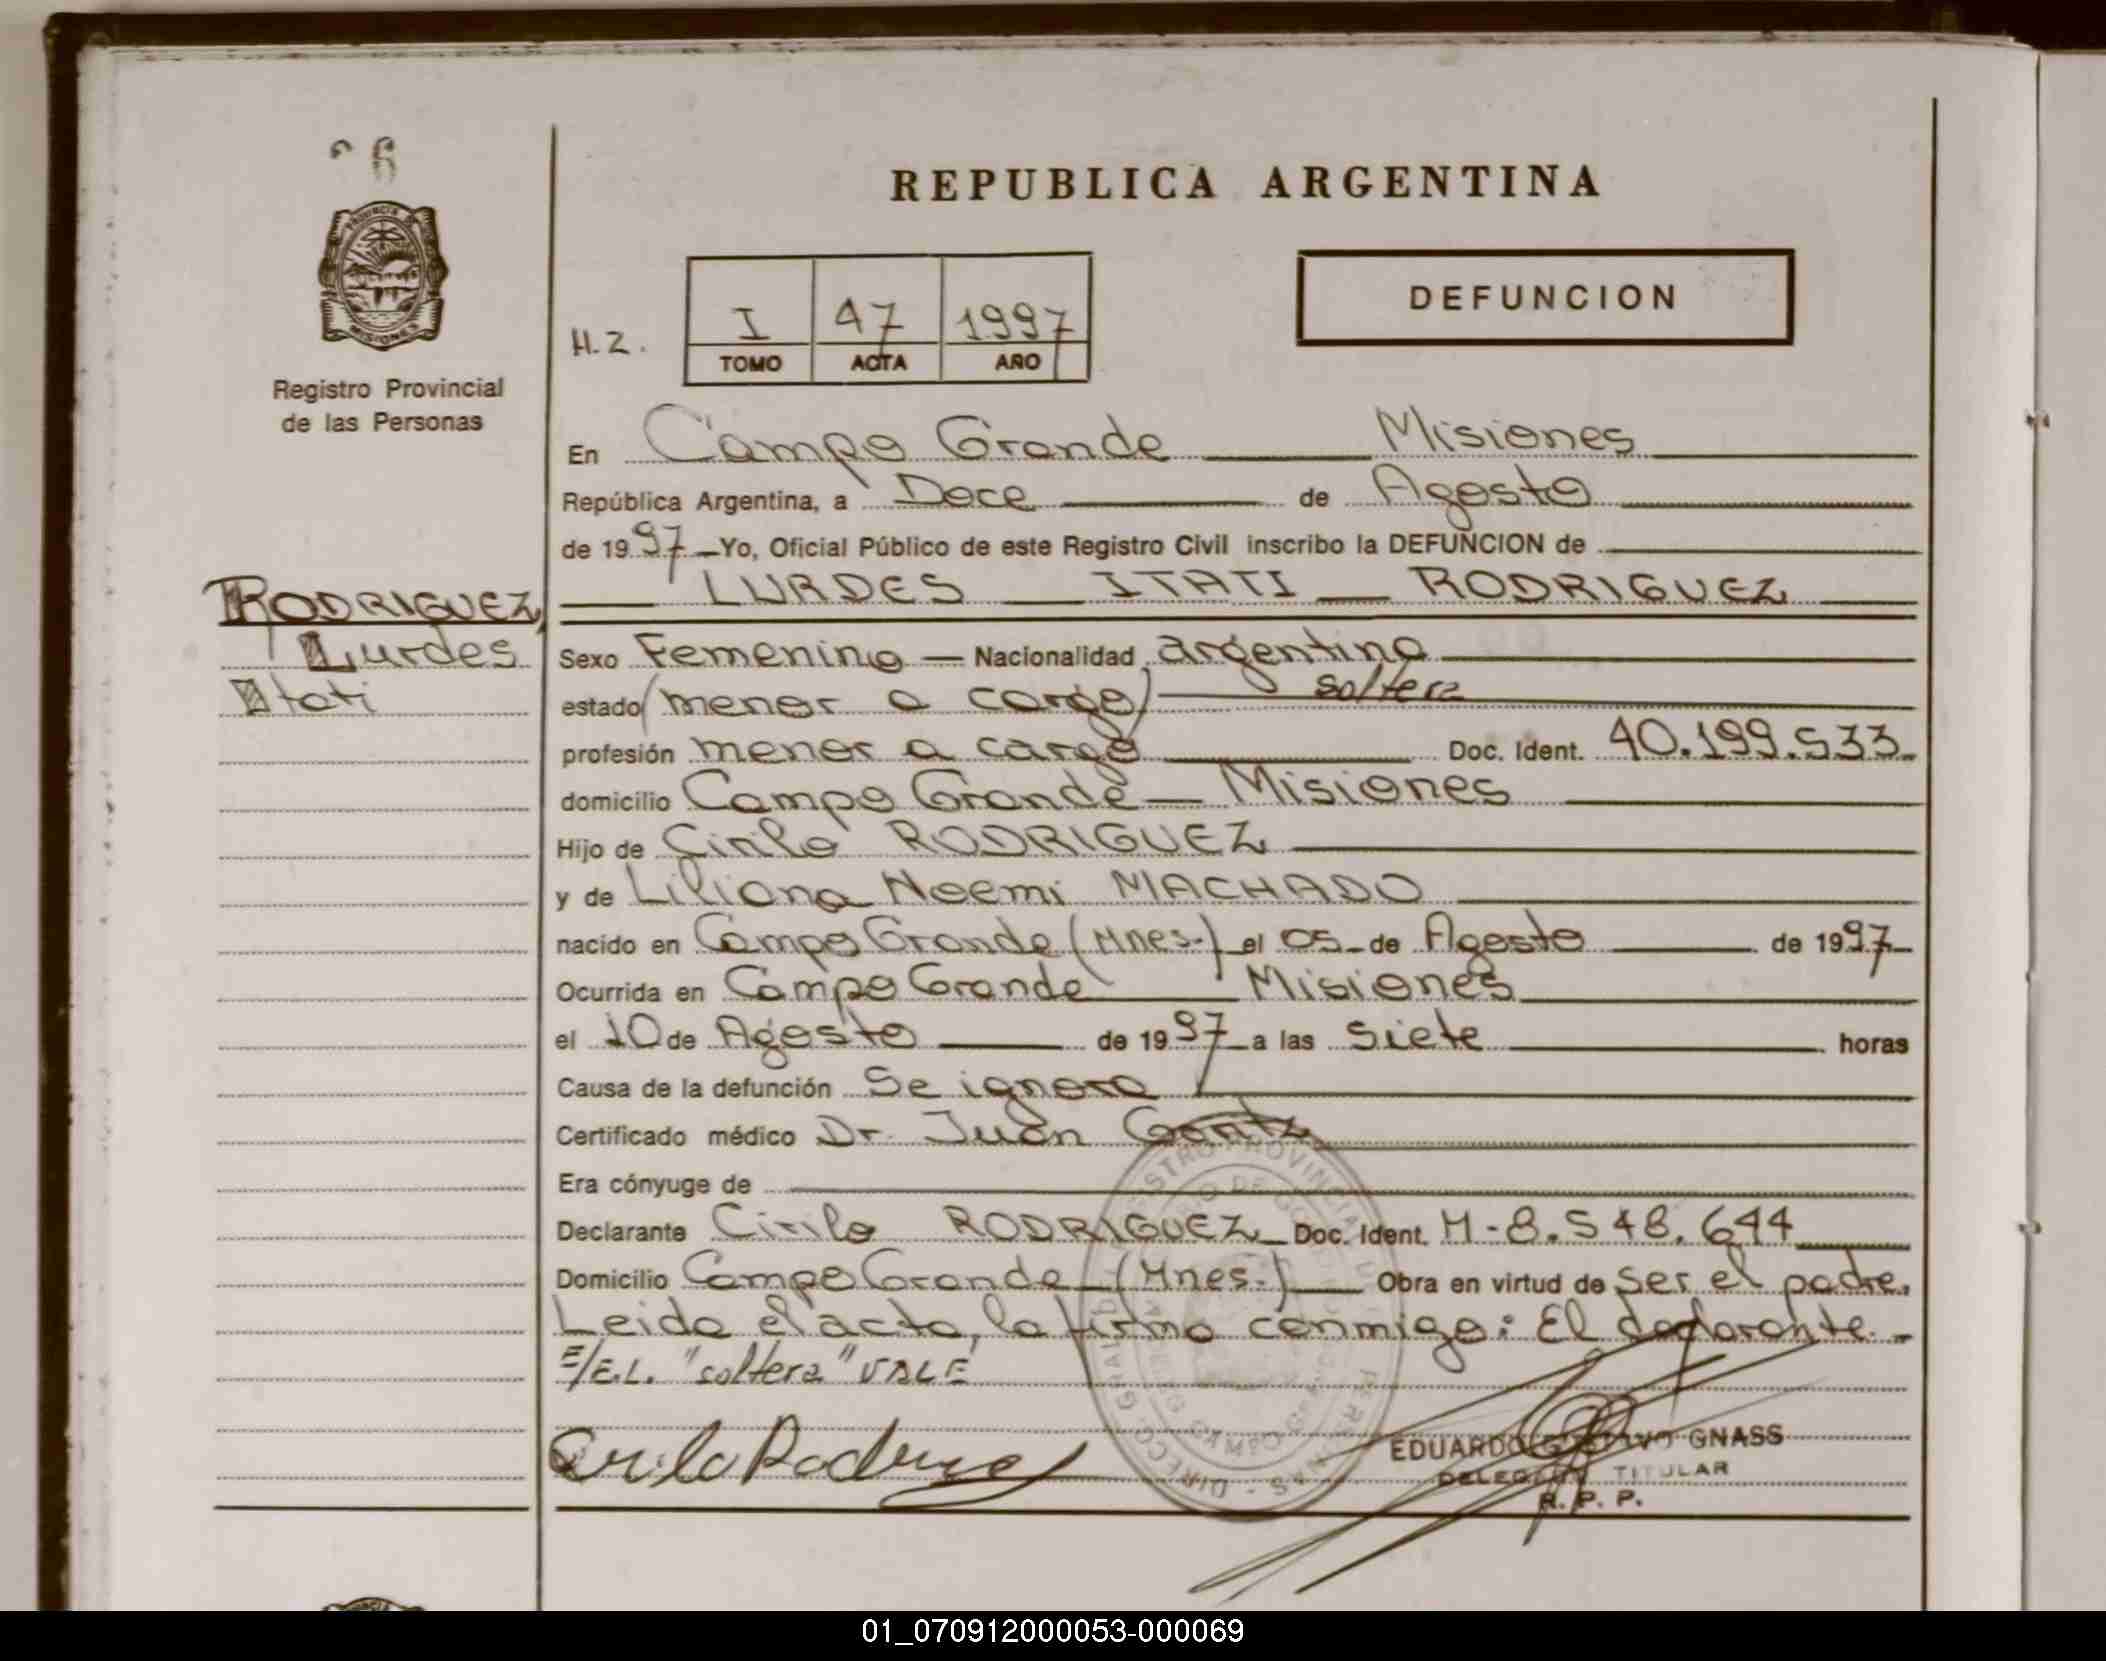 6
REPUBLICA ARGENTINA
DEFUNCION
H.Z.
I 47 1997
TOMO ACTA AÑO
PROVINCIA DE MISIONES
Registro Provincial
de las Personas
En Campo Grande Misiones
República Argentina, a Doce de Agosto
de 1997 Yo, Oficial Público de este Registro Civil inscribo la DEFUNCION de
LURDES ITATI RODRIGUEZ
RODRIGUEZ,
Lurdes
Itati
Sexo Femenino Nacionalidad argentina
soltera
estado (menor a cargo)
profesión menor a cargo Doc. Ident. 40.199.533
domicilio Campo Grande Misiones
Hijo de Cirilo RODRIGUEZ
y de Liliana Noemi MACHADO
nacido en Campo Grande (Mnes.) el 05 de Agosto de 1997
Ocurrida en Campo Grande Misiones
el 10 de Agosto de 1997 a las siete horas
Causa de la defunción Se ignora
Certificado médico Dr. Juan
Era cónyuge de
Declarante Cirilo RODRIGUEZ Doc. Ident. M-8.548.644
Domicilio Campo Grande (Mnes.) Obra en virtud de ser el padre.
Leida el acta, la firma conmigo: El declarante.-
E/E.L. "soltera" VALE
Cirilo Rodriguez
EDUARDO GUSTAVO GNASS
DELEGADO TITULAR
R. P. P.
01_070912000053-000069